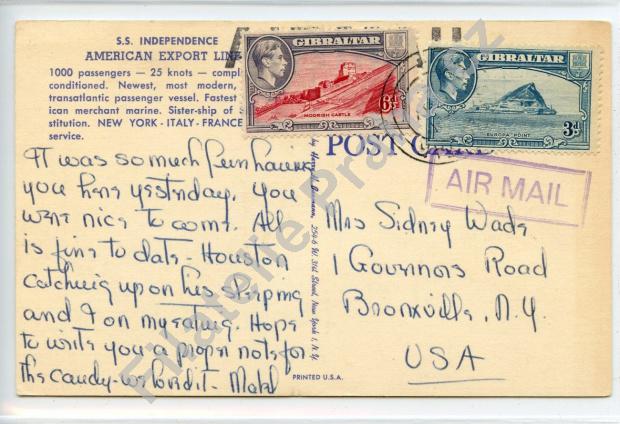 S.S. INDEPENDENCE
AMERICAN EXPORT LINE
1000 passengers — 25 knots — compl
conditioned. Newest, most modern,
transatlantic passenger vessel. Fastest
ican merchant marine. Sister-ship of
stitution. NEW YORK - ITALY - FRANCE
service.
GIBRALTAR
MOORISH CASTLE
6d
GIBRALTAR
EUROPA POINT
3d
POST CARD
AIR MAIL
It was so much fun having
you here yesterday. You
were nice to come. All
is fine to date - Houston
catching up on his sleeping
and I on my eating. Hope
to write you a proper note for
the candy - we love it - Mabel
Mrs Sidney Wade
1 Governors Road
Bronxville, N.Y.
USA
254-6 W. 31st Street, New York 1, N.Y.
PRINTED U.S.A.
Filatelie Pra